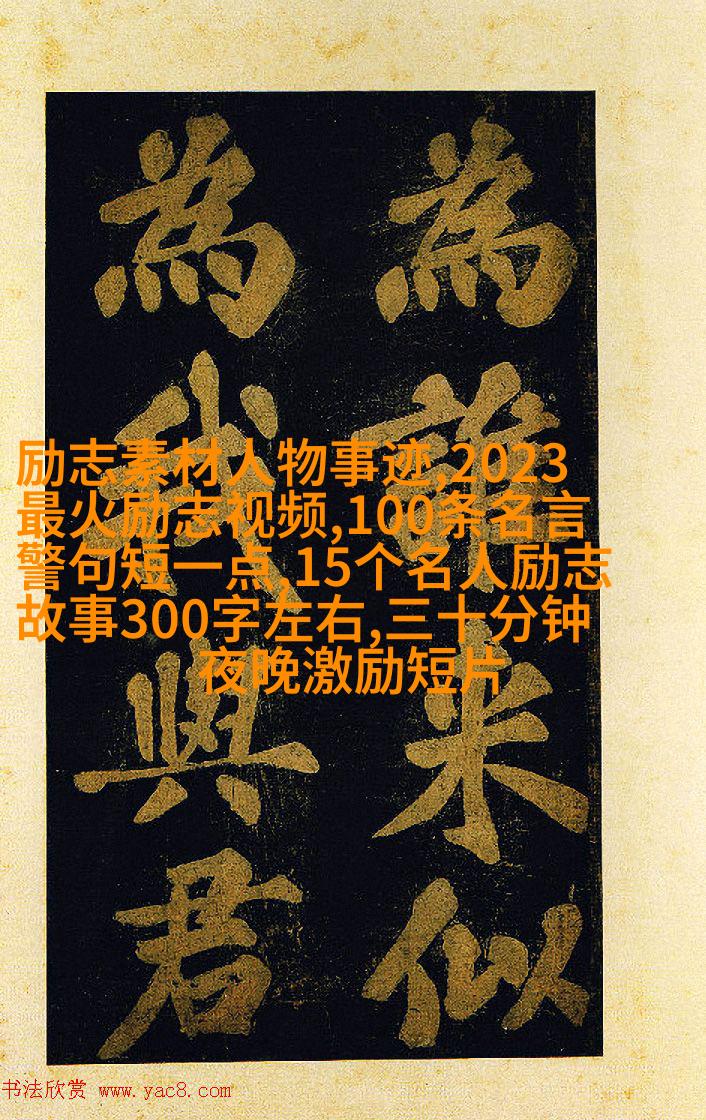 為誰来似
為我與君
励志素材人物事迹,2023
最火励志视频,100条名言
警句短一点,15个名人励志
故事300字左右,三十分钟
夜晚激励短片
书法欣赏 www.yac8.com